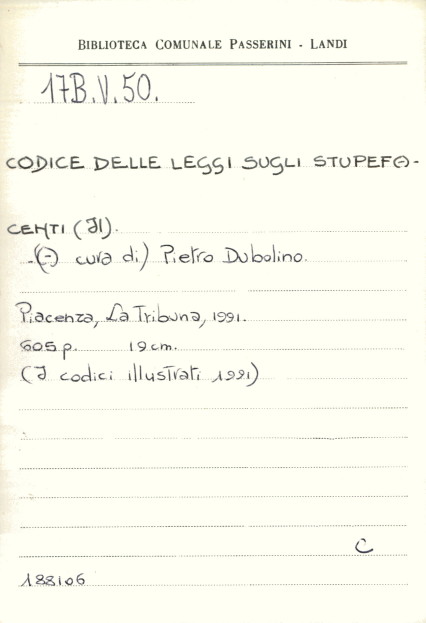 BIBLIOTECA COMUNALE PASSERINI - LANDI
17B.V.50.
CODICE DELLE LEGGI SUGLI STUPEFA-
CENTI (Il).
-(A cura di) Pietro Dubolino.
Piacenza, La Tribuna, 1991.
605 p. 19 cm.
(I codici illustrati 1991)
C
188106